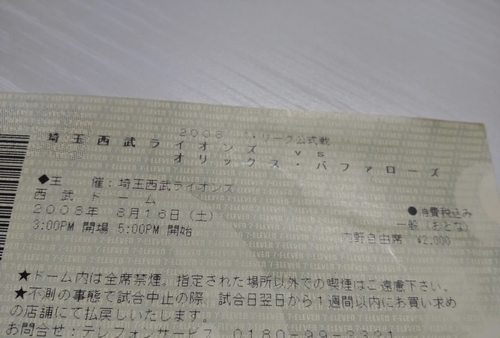 2008 パ・リーグ公式戦
埼玉西武ライオンズ vs
オリックス・バファローズ
◆主 催:埼玉西武ライオンズ
西武ドーム
2008年 8月16日(土)
3:00PM 開場 5:00PM 開始
●消費税込み
一般(おとな)
内野自由席 ¥2,000
★ドーム内は全席禁煙。指定された場所以外での喫煙はご遠慮下さい。
★不測の事態で試合中止の際、試合日翌日から1週間以内にお買い求め
の店舗にて払戻しいたします。
お問合せ:テレフォンサービス 0180-99-3321